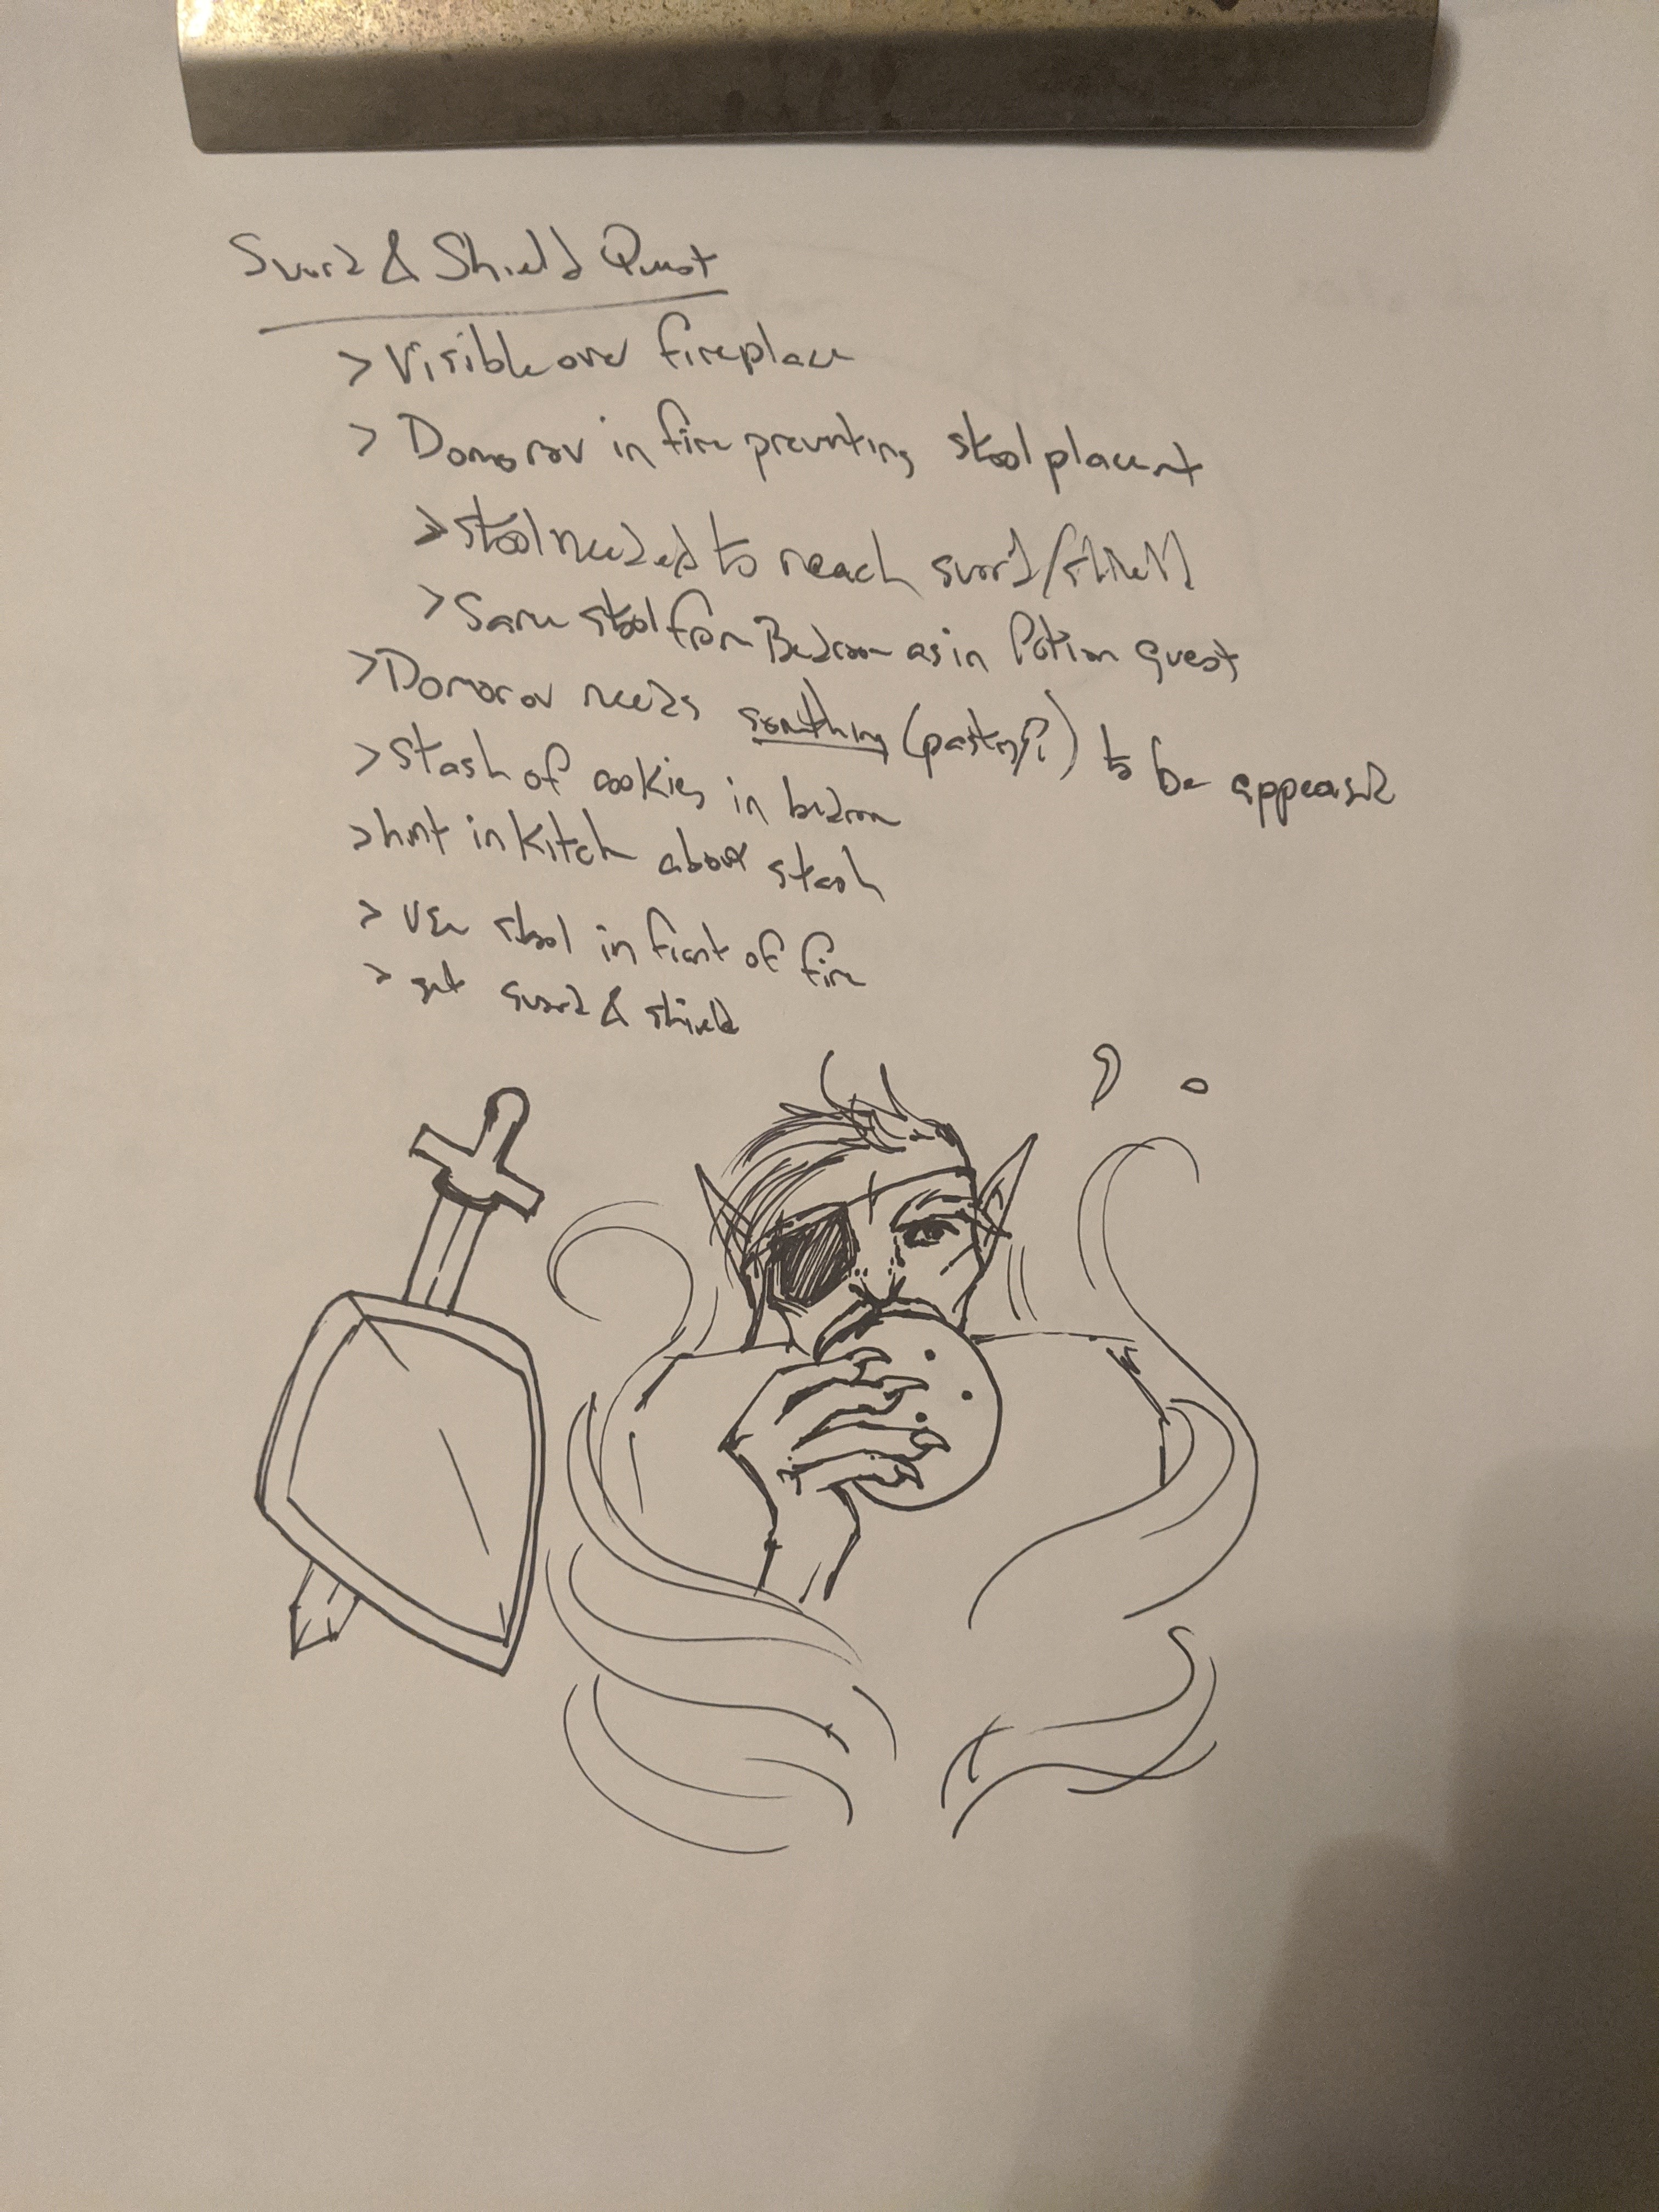 Sword & Shield Quest
> Visible over fireplace
> Domorov in fire preventing stool placement
> stool needed to reach sword/shield
> Same stool from Bedroom as in Potion quest
> Domorov needs something (pastry?) to be appeased
> stash of cookies in bedroom
> hint in Kitchen about stash
> use stool in front of fire
> get sword & shield